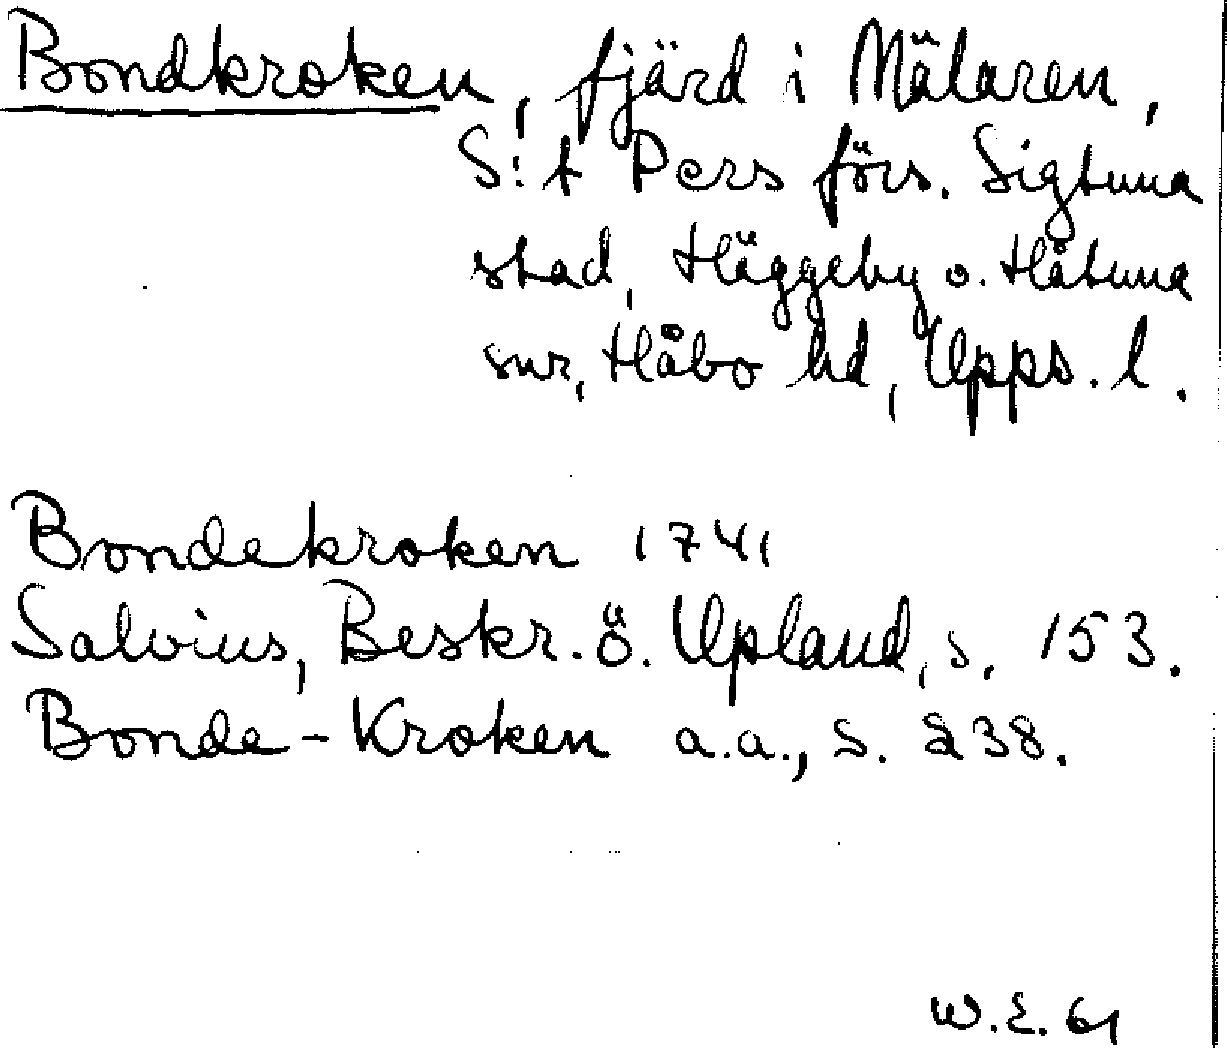 Bondkroken, fjärd i Mälaren,
S:t Pers förs. Sigtuna
stad, Häggeby o. Håtuna
snr, Håbo hd, Upps. l.
Bondekroken 1741
Salvius, Beskr. ö. Upland, s. 153.
Bonde-Kroken a.a., s. 238.
W.E. 61